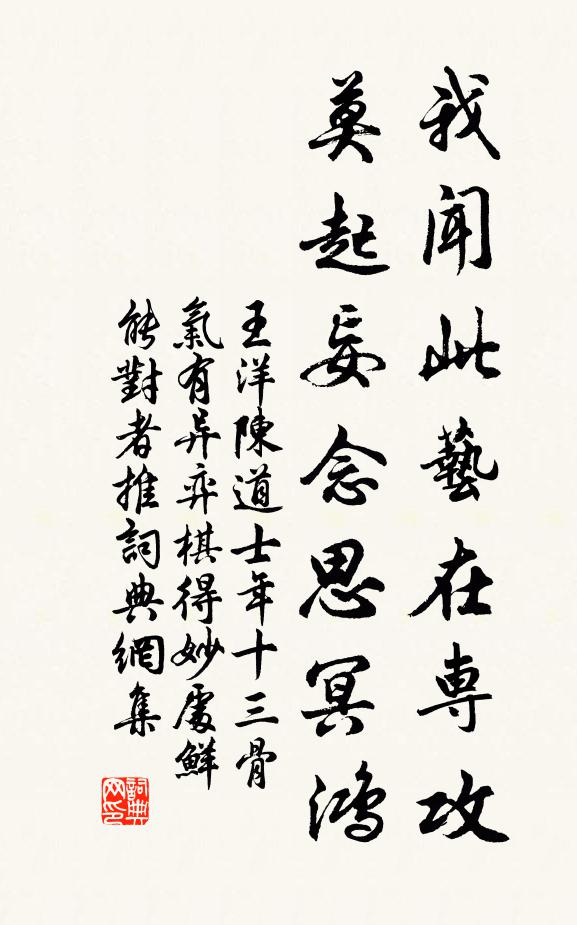 我聞此藝在専攻
莫起妄念思冥鴻
王洋陳道士年十三骨
氣有异弈棋得妙處鮮
能對者推詞典網集
詞典
网印